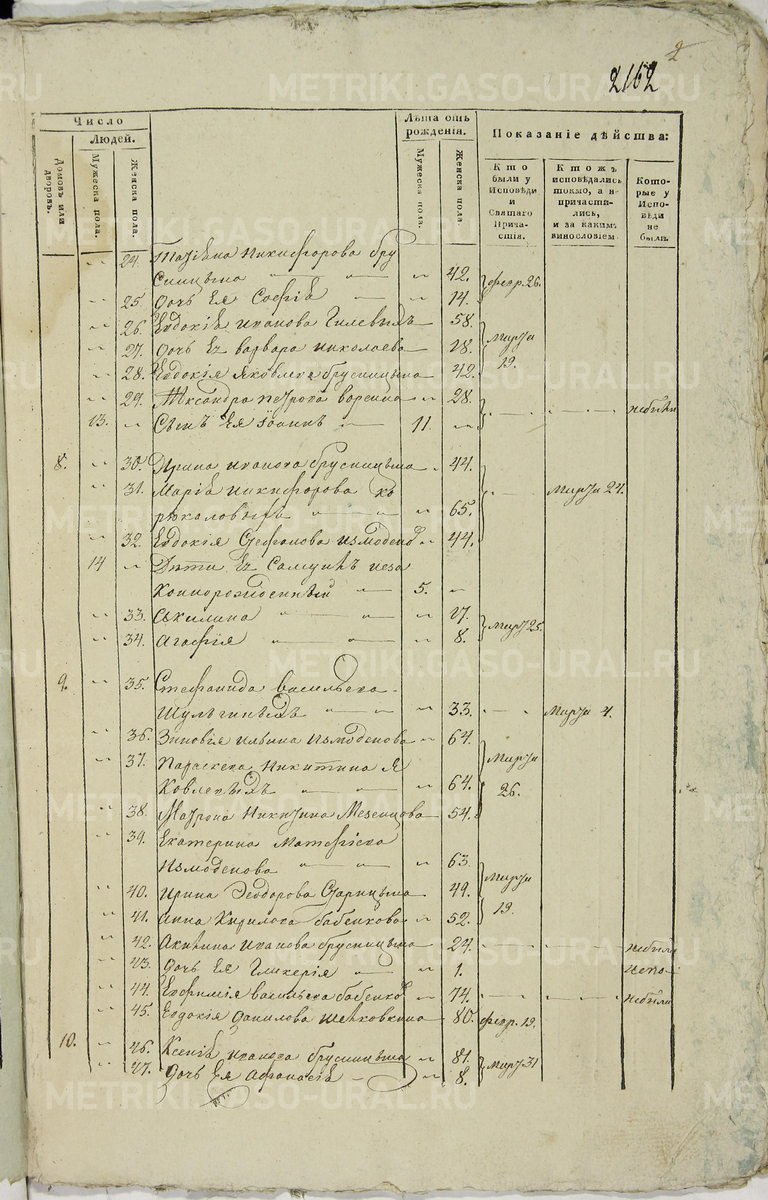 2
2162
Число
Людей.
Домовъ или дворовъ.
Мужеска пола.
Женска пола.
Лѣта отъ рожденія.
Мужеска пола.
Женска пола.
Показаніе дѣйства:
Кто были у Исповѣди и Святаго Причастія.
Ктожъ исповѣдались токмо, а не причастились, и за какимъ винословіемъ.
Которые у Исповѣди не были.
24. Татіана Никифорова Бру
сницына 42. Февр. 26.
25. Дочь Ея Софія 14.
26. Евдокія Иванова Гилевыхъ 58. Марта
27. Дочь Ея Варвара Николаева 28. 19.
28. Евдокія Яковлева Брусницына 42.
29. Александра Петрова 28. небыли
13. Сынъ Ея Іоаннъ 11.
8. 30. Ирина Иванова Брусницына 44.
31. Марія Никифорова Ко Марта 24.
рюкаловыхъ 65.
32. Евдокія Стефанова Измоденов 44.
14 Дѣти Ея Самуилъ неза
коннорожденный 5.
33. Акилина 17.
34. Агафія 8. Марта 25.
9. 35. Стефанида Васильева
Шулгиныхъ 33. Марта 4.
36. Зиновія Ильина Измоденова 64.
37. Параскева Никитина Я Марта
ковлевыхъ 64. 26.
38. Матрона Никитина Мезенцова 54.
39. Екатерина Матфіева
Измоденова 63. Марта
40. Ирина Феодорова Старицына 49.
41. Анна Кирилова Бабенкова 52. 19.
42. Акилина Иванова Брусницына 24. небыли
43. Дочь Ея Гликерія 1.
44. Евфимія Васильева Бабенков 74. небыли
45. Евдокія Данилова Шелковкина 80. Февр. 19.
10. 46. Ксенія Иванова Брусницына 81.
47. Дочь Ея Афанасія 8. Марта 31
METRIKI.GASO-URAL.RU